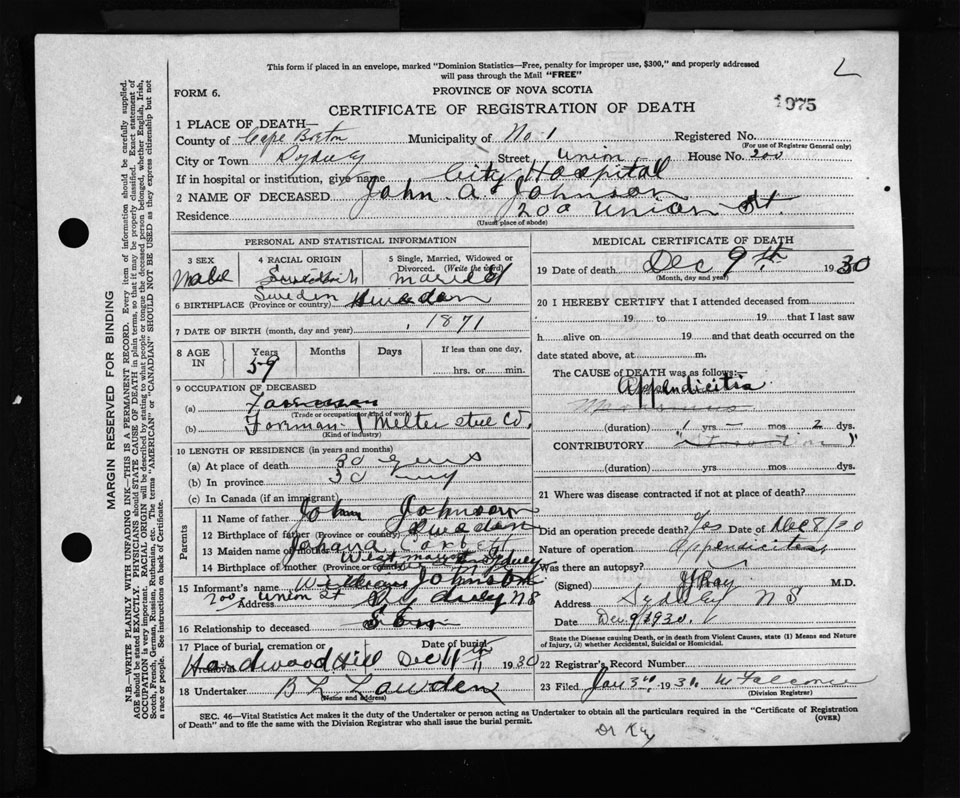 This form if placed in an envelope, marked "Dominion Statistics—Free, penalty for improper use, $300," and properly addressed
will pass through the Mail "FREE"
FORM 6.
PROVINCE OF NOVA SCOTIA
1975
CERTIFICATE OF REGISTRATION OF DEATH
1 PLACE OF DEATH—
County of Cape Breton Municipality of No 1 Registered No.
(For use of Registrar General only)
City or Town Sydney Street Union House No. 200
If in hospital or institution, give name City Hospital
2 NAME OF DECEASED John A. Johnson
Residence 200 Union St.
(Usual place of abode)
PERSONAL AND STATISTICAL INFORMATION
3 SEX 4 RACIAL ORIGIN 5 Single, Married, Widowed or Divorced. (Write the word)
Male Swedish Married
6 BIRTHPLACE (Province or country) Sweden Sweden
7 DATE OF BIRTH (month, day and year) 1871
8 AGE IN Years Months Days If less than one day,
59 hrs. or min.
9 OCCUPATION OF DECEASED
(a) Foreman
(Trade or occupation or kind of work)
(b) Foreman Melter Steel Co.
(Kind of industry)
10 LENGTH OF RESIDENCE (in years and months)
(a) At place of death 30 years
(b) In province 30
(c) In Canada (if an immigrant)
Parents
11 Name of father John Johnson
12 Birthplace of father (Province or country) Sweden
13 Maiden name of mother
14 Birthplace of mother (Province or country)
15 Informant's name William Johnson
Address 200 Union St Sydney NS
16 Relationship to deceased Son
17 Place of burial, cremation or removal Date of burial
Hardwood Hill Dec 11 1930
18 Undertaker B L Lawden
(Name and address)
MEDICAL CERTIFICATE OF DEATH
19 Date of death Dec 9th 1930
(Month, day and year)
20 I HEREBY CERTIFY that I attended deceased from
19 to 19 that I last saw
h alive on 19 and that death occurred on the
date stated above, at m.
The CAUSE of DEATH was as follows:
Appendicitis
(duration) 1 yrs — mos 2 dys.
CONTRIBUTORY
(duration) yrs mos dys.
21 Where was disease contracted if not at place of death?
Did an operation precede death? Yes Date of Dec 8/30
Nature of operation Appendicitis
Was there an autopsy?
(Signed) M.D.
Address Sydney NS
Date Dec 9/1930
State the Disease causing Death, or in death from Violent Causes, state (1) Means and Nature
of Injury, (2) whether Accidental, Suicidal or Homicidal.
22 Registrar's Record Number
23 Filed Jan 3rd 1931
(Division Registrar)
SEC. 46—Vital Statistics Act makes it the duty of the Undertaker or person acting as Undertaker to obtain all the particulars required in the "Certificate of Registration
of Death" and to file the same with the Division Registrar who shall issue the burial permit.
(OVER)
MARGIN RESERVED FOR BINDING
N.B.—WRITE PLAINLY WITH UNFADING INK—THIS IS A PERMANENT RECORD. Every item of information should be carefully supplied.
AGE should be stated EXACTLY. PHYSICIANS should STATE CAUSE OF DEATH in plain terms, so that it may be properly classified. Exact statement of
OCCUPATION is very important. RACIAL ORIGIN will be described by stating to what people or tongue the deceased person belonged, whether English, Irish,
Scotch, French, German, Russian, Ruthenian, etc. The terms "AMERICAN" or "CANADIAN" SHOULD NOT BE USED as they express citizenship but not
a race or people. See instructions on back of Certificate.